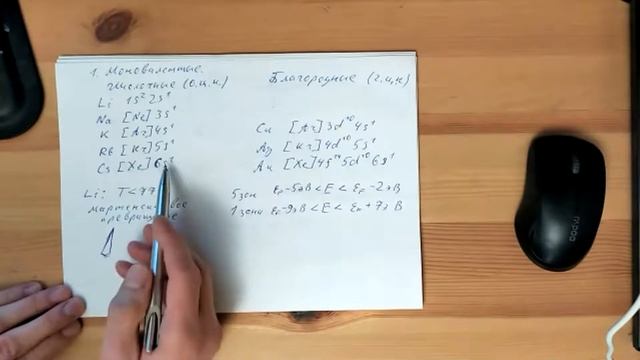 1. Моновалентные.
Щелочные (о.ц.к.)
Li 1s² 2s¹
Na [Ne] 3s¹
K [Ar] 4s¹
Rb [Kr] 5s¹
Cs [Xe] 6s¹
Li: T < 77
Мартенситное
превращение
Благородные (г.ц.к)
Cu [Ar] 3d¹⁰ 4s¹
Ag [Kr] 4d¹⁰ 5s¹
Au [Xe] 4f¹⁴ 5d¹⁰ 6s¹
5 зон εF-5эВ < E < εF-2эВ
1 зона εF-9эВ < E < εF+7эВ
rapoo